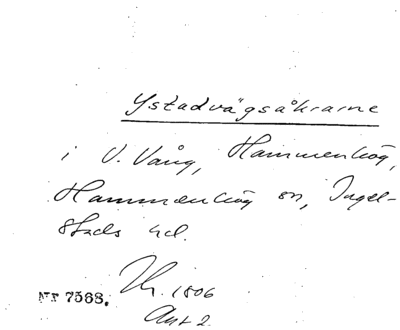 Ystadvägsåkrarne
i V. Vång, Hammenhög,
Hammenhög sn, Ingel-
stads hd.
Nr 7568.
1806
Akt 2